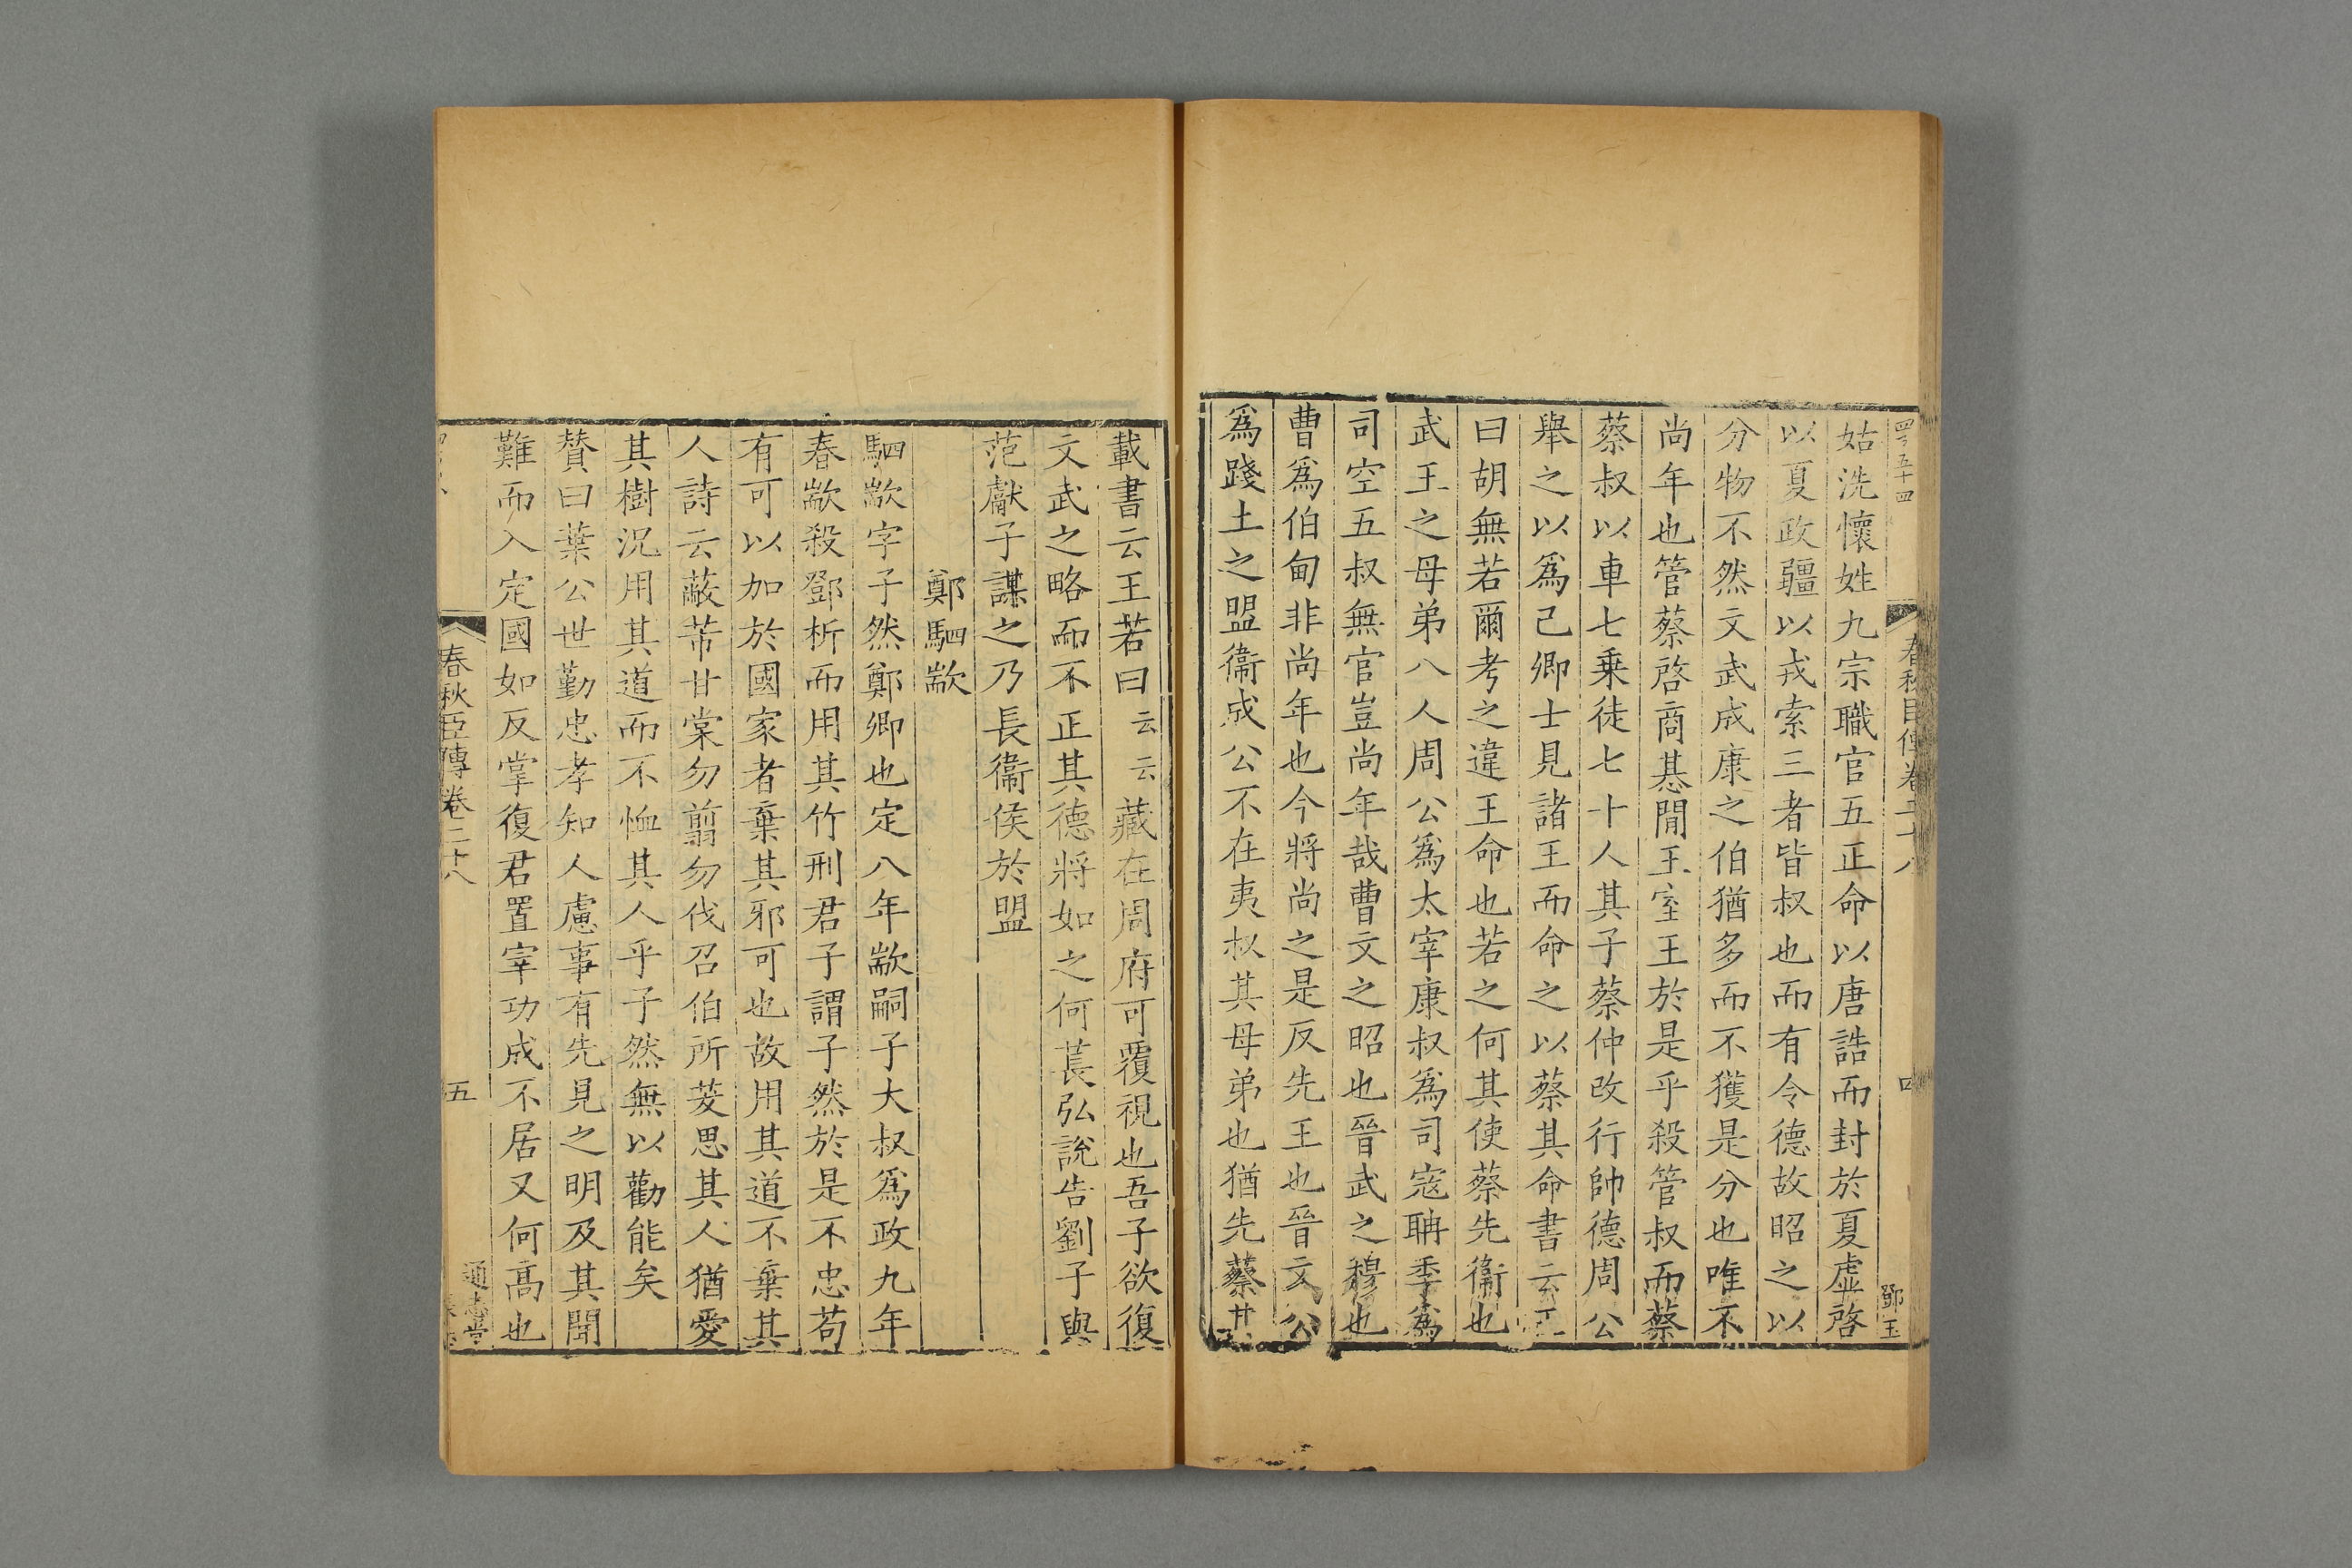 四百五十四
春秋臣傳卷二十八
四
鄧玉
姑洗懷姓九宗職官五正命以唐誥而封於夏虛啓
以夏政疆以戎索三者皆叔也而有令德故昭之以
分物不然文武成康之伯猶多而不獲是分也唯不
尚年也管蔡啓商惎閒王室王於是乎殺管叔而蔡
蔡叔以車七乗徒七十人其子蔡仲改行帥德周公
舉之以爲己卿士見諸王而命之以蔡其命書云王
曰胡無若爾考之違王命也若之何其使蔡先衞也
武王之母弟八人周公爲太宰康叔爲司寇聃季爲
司空五叔無官豈尚年哉曹文之昭也晉武之穆也
曹爲伯甸非尚年也今將尚之是反先王也晉文公
爲踐土之盟衞成公不在夷叔其母弟也猶先蔡其
載書云王若曰云云藏在周府可覆視也吾子欲復
文武之略而不正其德將如之何萇弘說告劉子與
范獻子謀之乃長衞侯於盟
鄭駟歂
駟歂字子然鄭卿也定八年歂嗣子大叔爲政九年
春歂殺鄧析而用其竹刑君子謂子然於是不忠苟
有可以加於國家者棄其邪可也故用其道不棄其
人詩云蔽芾甘棠勿翦勿伐召伯所茇思其人猶愛
其樹況用其道而不恤其人乎子然無以勸能矣
贊曰葉公世勤忠孝知人慮事有先見之明及其聞
難而入定國如反掌復君置宰功成不居又何高也
春秋臣傳卷二十八
五
通志堂